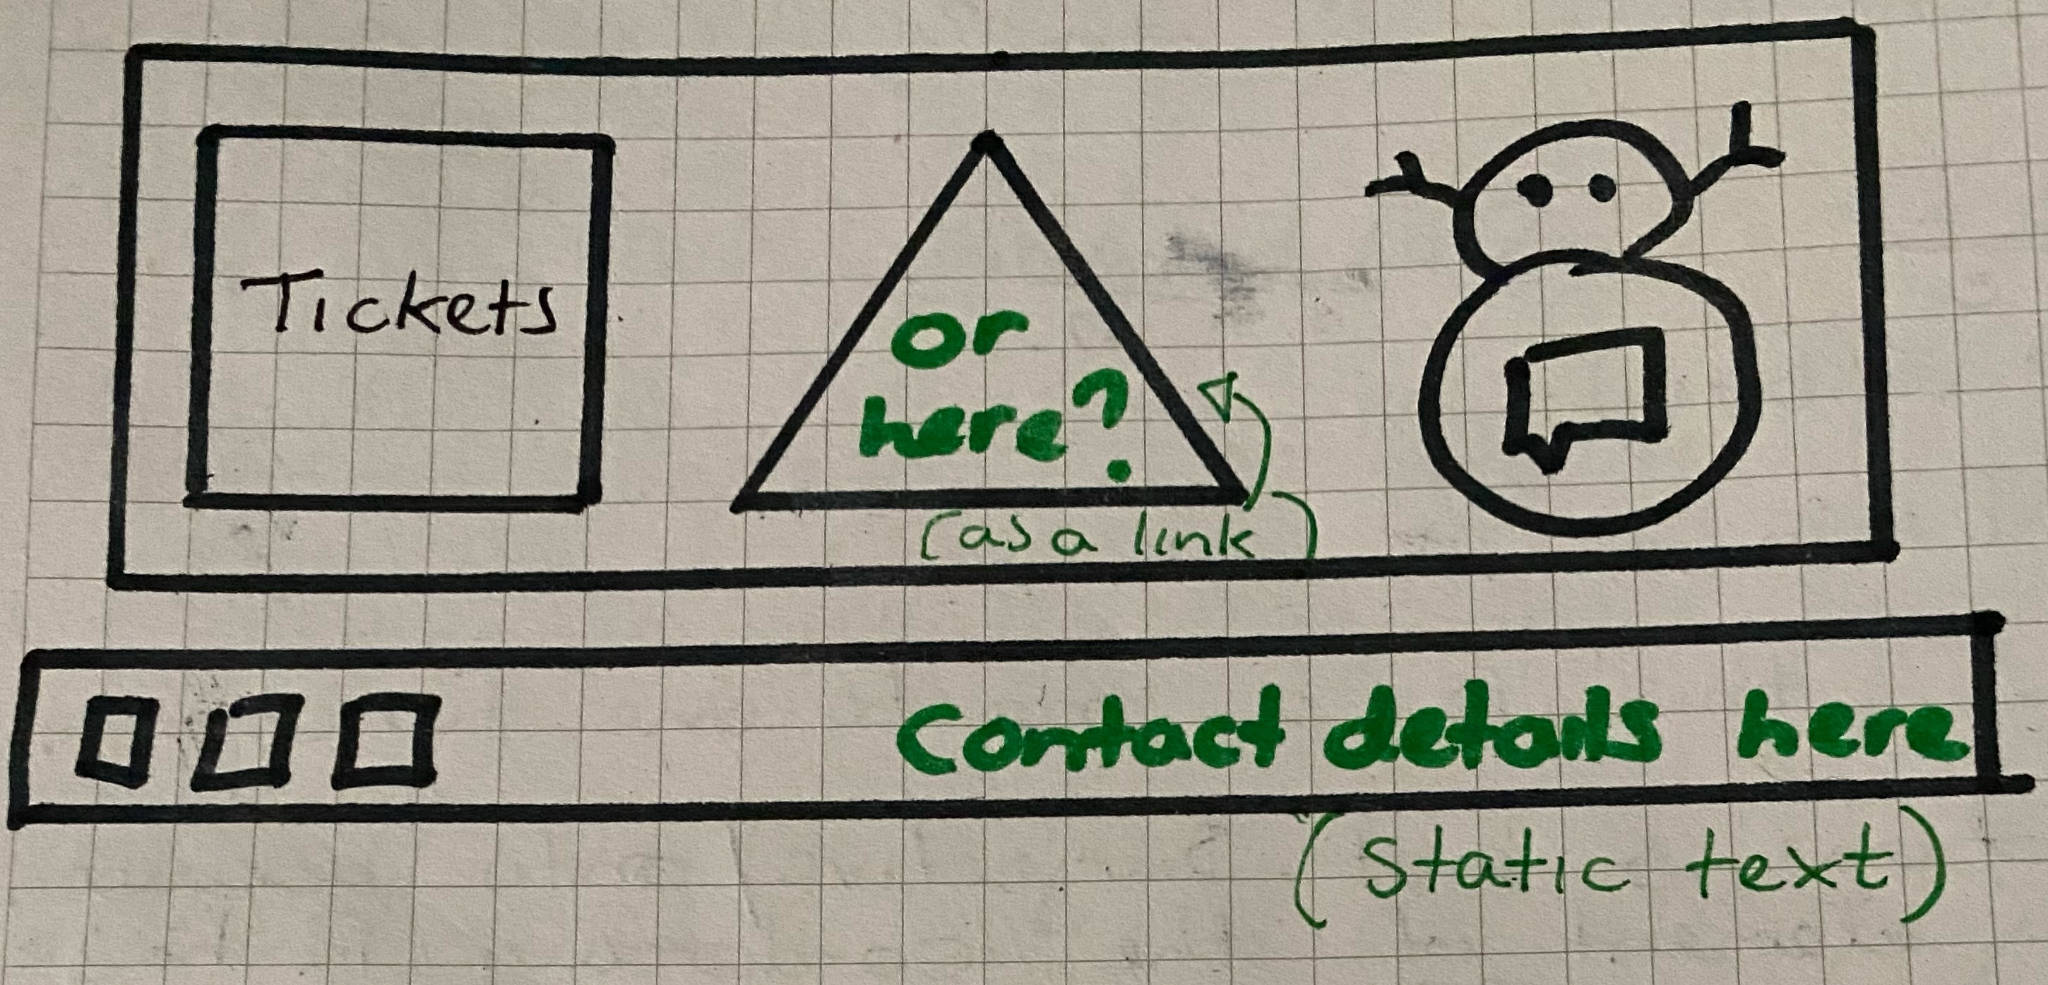 Tickets
or
here?
(as a link)
Contact details here
(static text)